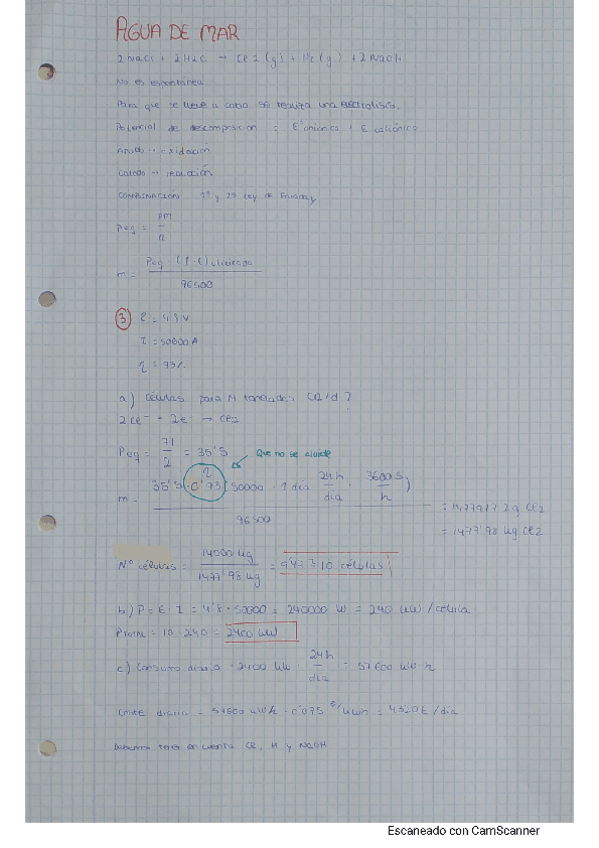 AGUA DE MAR
2 NaCl + 2 H2O → Cl2 (g) + H2 (g) + 2 NaOH
No es espontánea.
Para que se lleve a cabo se realiza una electrolisis.
Potencial de descomposición = E aniónico + E catiónico
Anodo → oxidación
Catodo → reducción
COMBINACIÓN 1ª y 2ª Ley de Faraday
Peq = PM / n
m = Peq · (I · t) / 96500
③ E = 4'8 V
I = 50000 A
η = 93%
a) Células para 14 toneladas Cl2/d?
2 Cl⁻ - 2e⁻ → Cl2
Peq = 71 / 2 = 35'5 Que no se olvide
η
m = 35'5 · 0'93 (50000 · 1 día · 24h/día · 3600s/h) / 96500 = 1477977'2 g Cl2
= 1477'98 kg Cl2
Nº células = 14000 kg / 1477'98 kg = 10 células
b) P = E · I = 4'8 · 50000 = 240000 W = 240 kW / célula
= 10 · 240 = 2400 kW
c) Consumo diario = 2400 kW · 24h/día = 57600 kW h
Coste diario = 57600 kWh · 0'075 €/kWh = 4320 € / día
Debemos tener en cuenta Cl, H y NaOH
Escaneado con CamScanner